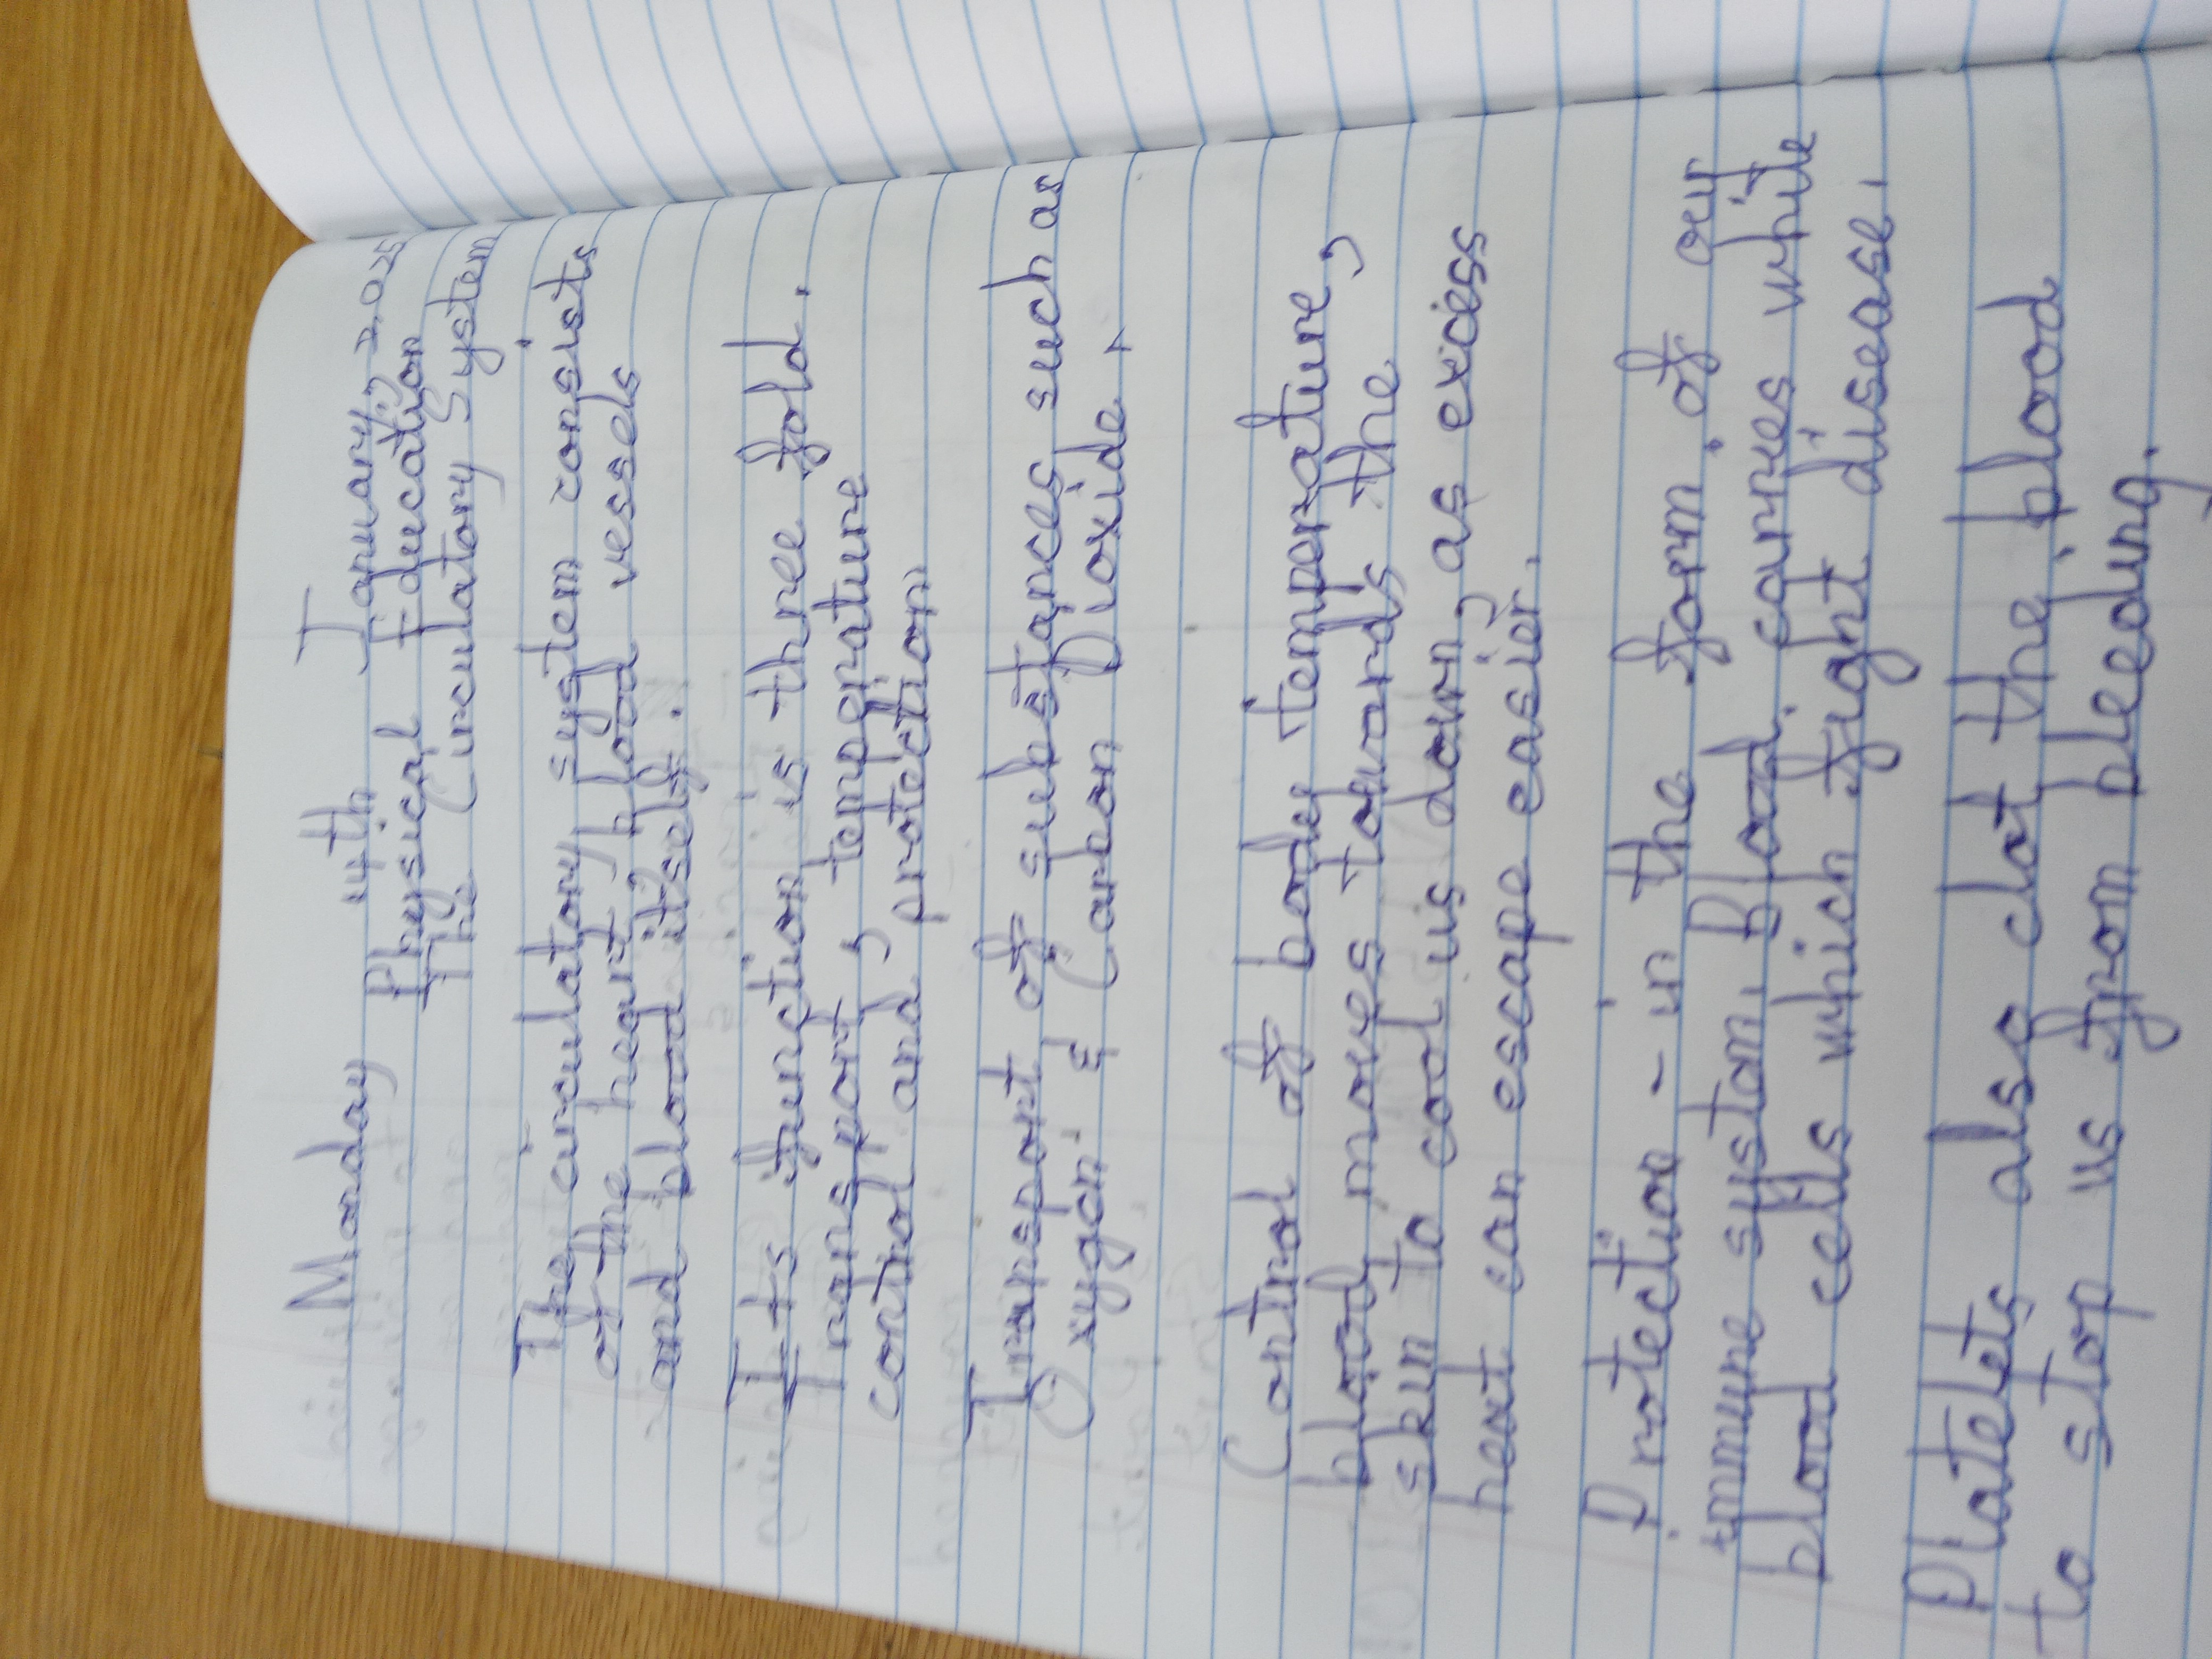 Monday 14th January, 2025
Physical Education
The Circulatory System
The circulatory system consists
of the heart, blood vessels
and blood itself.
Its function is three fold.
Transport, temperature
control and protection
Transport of substances such as
Oxygen & Carbon Dioxide.
Control of body temperature,
blood moves towards the
skin to cool us down, as excess
heat can escape easier.
Protection - in the form of our
immune system. Blood carries white
blood cells which fight disease.
Platelets also clot the blood
to stop us from bleeding.